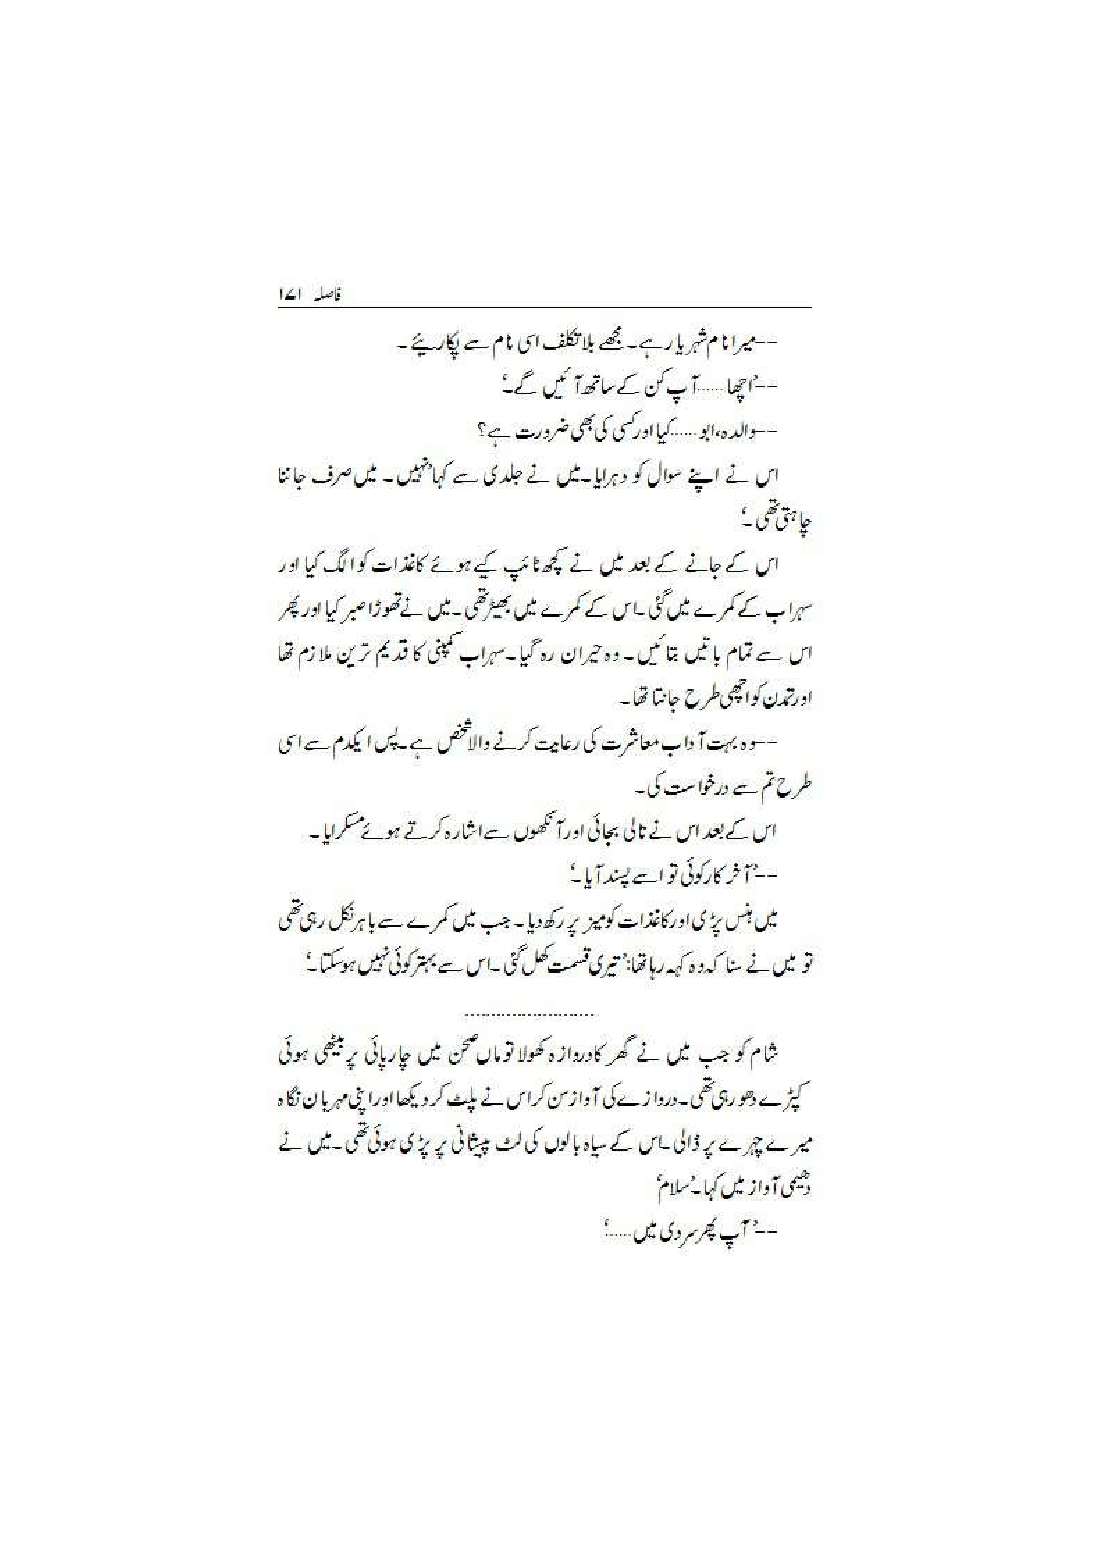 فاصلہ ۱۷۱
--میرا نام شہریار ہے۔ مجھے بلا تکلف اسی نام سے پکاریئے۔
--’اچھا......آپ کن کے ساتھ آئیں گے۔‘
--والدہ،ابو......کیا اور کسی کی بھی ضرورت ہے؟
اس نے اپنے سوال کو دہرایا۔میں نے جلدی سے کہا’نہیں۔ میں صرف جاننا
چاہتی تھی۔‘
اس کے جانے کے بعد میں نے کچھ ٹائپ کیے ہوئے کاغذات کو الگ کیا اور
سہراب کے کمرے میں گئی۔اس کے کمرے میں بھیڑ تھی۔میں نے تھوڑا صبر کیا اور پھر
اس سے تمام باتیں بتائیں۔ وہ حیران رہ گیا۔سہراب کمپنی کا قدیم ترین ملازم تھا
اور تمدن کو اچھی طرح جانتا تھا۔
--وہ بہت آداب معاشرت کی رعایت کرنے والا شخص ہے۔پس ایکدم سے اسی
طرح تم سے درخواست کی۔
اس کے بعد اس نے تالی بجائی اور آنکھوں سے اشارہ کرتے ہوئے مسکرایا۔
--’آخر کار کوئی تو اسے پسند آیا۔‘
میں ہنس پڑی اور کاغذات کو میز پر رکھ دیا۔ جب میں کمرے سے باہر نکل رہی تھی
تو میں نے سنا کہ وہ کہہ رہا تھا:’تیری قسمت کھل گئی۔اس سے بہتر کوئی نہیں ہو سکتا۔‘
.........................
شام کو جب میں نے گھر کا دروازہ کھولا تو ماں صحن میں چارپائی پر بیٹھی ہوئی
کپڑے دھو رہی تھی۔دروازے کی آواز سن کر اس نے پلٹ کر دیکھا اور اپنی مہربان نگاہ
میرے چہرے پر ڈالی۔اس کے سیاہ بالوں کی لٹ پیشانی پر پڑی ہوئی تھی۔میں نے
دھیمی آواز میں کہا۔’سلام‘
--’آپ پھر سردی میں......‘